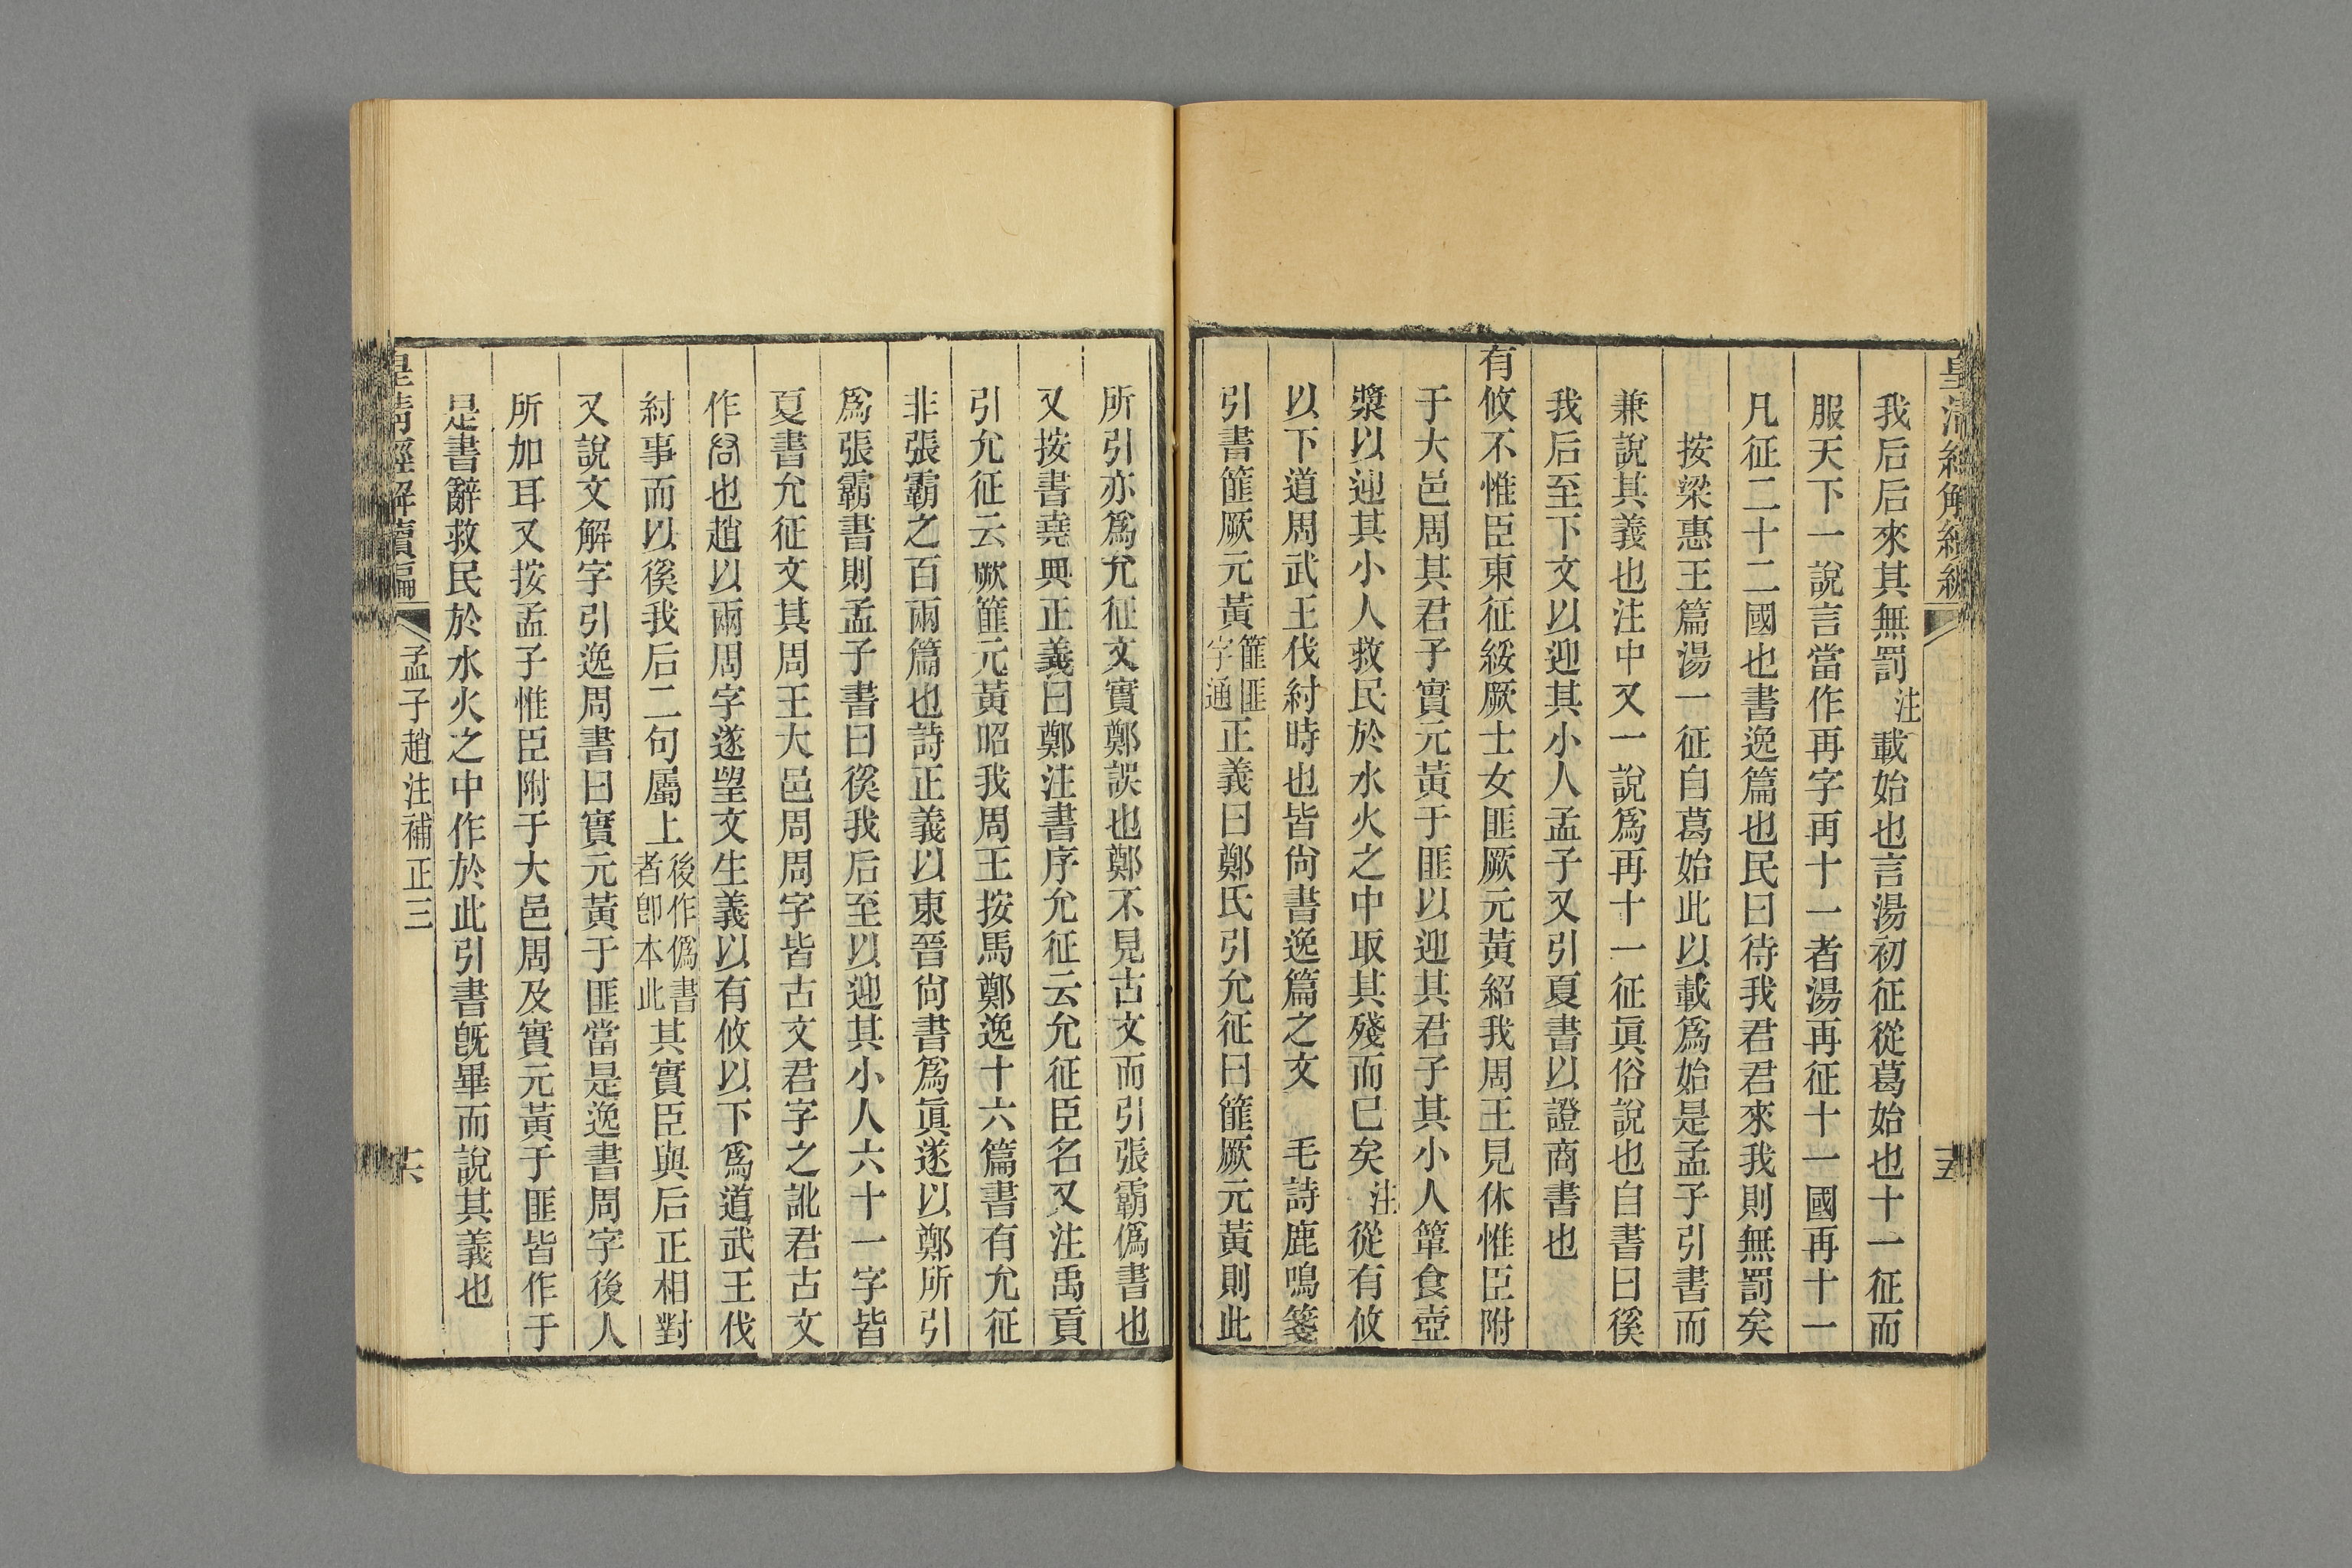 皇清經解續編
我后后來其無罰注載始也言湯初征從葛始也十一征而
服天下一說言當作再字再十一者湯再征十一國再十一
凡征二十二國也書逸篇也民曰待我君君來我則無罰矣
按梁惠王篇湯一征自葛始此以載爲始是孟子引書而
兼說其義也注中又一說爲再十一征眞俗說也自書曰徯
我后至下文以迎其小人孟子又引夏書以證商書也
有攸不惟臣東征綏厥士女匪厥元黃紹我周王見休惟臣附
于大邑周其君子實元黃于匪以迎其君子其小人簞食壺
漿以迎其小人救民於水火之中取其殘而已矣注從有攸
以下道周武王伐紂時也皆尙書逸篇之文　毛詩鹿鳴箋
引書篚厥元黃篚匪字通正義曰鄭氏引允征曰篚厥元黃則此
所引亦爲允征文實鄭誤也鄭不見古文而引張霸僞書也
又按書堯典正義曰鄭注書序允征云允征臣名又注禹貢
引允征云厥篚元黃昭我周王按馬鄭逸十六篇書有允征
非張霸之百兩篇也詩正義以東晉尙書爲眞遂以鄭所引
爲張霸書則孟子書曰徯我后至以迎其小人六十一字皆
夏書允征文其周王大邑周周字皆古文君字之訛君古文
作𠱭也趙以兩周字遂望文生義以有攸以下爲道武王伐
紂事而以徯我后二句屬上後作僞書者卽本此其實臣與后正相對
又說文解字引逸周書曰實元黃于匪當是逸書周字後人
所加耳又按孟子惟臣附于大邑周及實元黃于匪皆作于
是書辭救民於水火之中作於此引書旣畢而說其義也
皇清經解續編　孟子趙注補正三